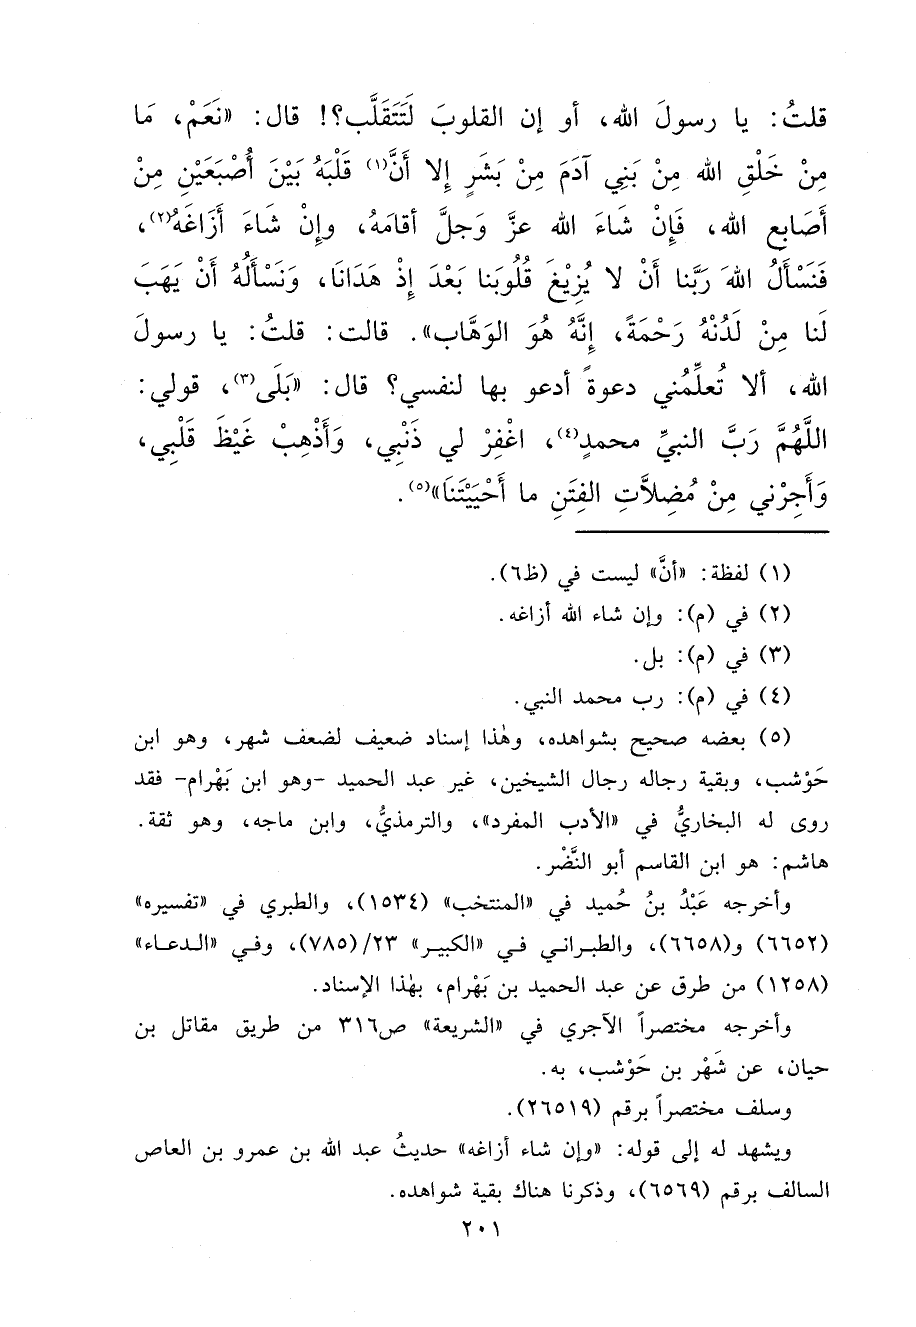 قلتُ: يا رسولَ الله، أو إن القلوبَ لَتَتَقَلَّب؟! قال: «نَعَمْ، مَا
مِنْ خَلْقِ الله مِنْ بَنِي آدَمَ مِنْ بَشَرٍ إلا أَنَّ(١) قَلْبَهُ بَيْنَ أُصْبَعَيْنِ مِنْ
أَصَابِعِ الله، فَإِنْ شَاءَ الله عزَّ وَجلَّ أقامَهُ، وإِنْ شَاءَ أَزَاغَهُ(٢)،
فَنَسْأَلُ اللهَ رَبَّنا أَنْ لا يُزِيْغَ قُلُوبَنا بَعْدَ إِذْ هَدَانَا، وَنَسْأَلُهُ أَنْ يَهَبَ
لَنا مِنْ لَدُنْهُ رَحْمَةً، إِنَّهُ هُوَ الوَهَّاب». قالت: قلتُ: يا رسولَ
الله، ألا تُعلِّمُني دعوةً أدعو بها لنفسي؟ قال: «بَلَى(٣)، قولي:
اللَّهُمَّ رَبَّ النبيِّ محمدٍ(٤)، اغْفِرْ لي ذَنْبِي، وَأَذْهِبْ غَيْظَ قَلْبِي،
وَأَجِرْني مِنْ مُضِلاَّتِ الفِتَنِ ما أَحْيَيْتَنَا»(٥).
(١) لفظة: «أنَّ» ليست في (ظ٦).
(٢) في (م): وإن شاء الله أزاغه.
(٣) في (م): بل.
(٤) في (م): رب محمد النبي.
(٥) بعضه صحيح بشواهده، وهٰذا إسناد ضعيف لضعف شهر، وهو ابن
حَوْشب، وبقية رجاله رجال الشيخين، غير عبد الحميد -وهو ابن بَهْرام- فقد
روى له البخاريُّ في «الأدب المفرد»، والترمذيُّ، وابن ماجه، وهو ثقة.
هاشم: هو ابن القاسم أبو النَّضْر.
وأخرجه عَبْدُ بنُ حُميد في «المنتخب» (١٥٣٤)، والطبري في «تفسيره»
(٦٦٥٢) و(٦٦٥٨)، والطبراني في «الكبير» ٢٣/(٧٨٥)، وفي «الدعاء»
(١٢٥٨) من طرق عن عبد الحميد بن بَهْرام، بهٰذا الإسناد.
وأخرجه مختصراً الآجري في «الشريعة» ص٣١٦ من طريق مقاتل بن
حيان، عن شَهْر بن حَوْشب، به.
وسلف مختصراً برقم (٢٦٥١٩).
ويشهد له إلى قوله: «وإن شاء أزاغه» حديثُ عبد الله بن عمرو بن العاص
السالف برقم (٦٥٦٩)، وذكرنا هناك بقية شواهده.
٢٠١